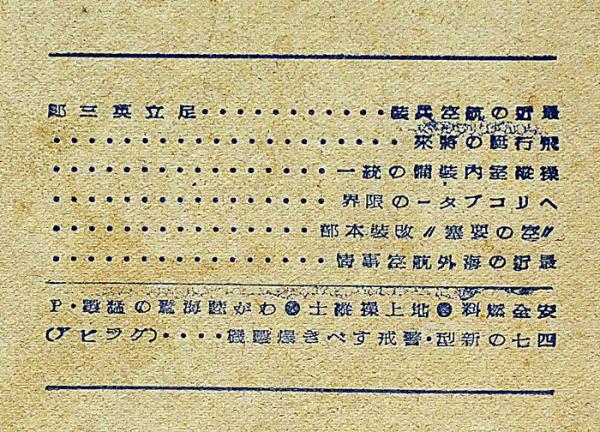 最近の航空兵裝・・・・・・・・・・・足立英三郎
飛行艇の將來・・・・・・・・・・・・・・・・・・
操縱室内裝備の統一・・・・・・・・・・・・・・
ヘリコプターの限界・・・・・・・・・・・・・・
〃空の要塞〃改裝本部・・・・・・・・・・・・
最近の海外航空事情・・・・・・・・・・・・・・
安全燃料◎地上操縱士◎わが陸海鷲の猛擊・P
四七の新型・警戒すべき爆擊機・・・・(グラビア)